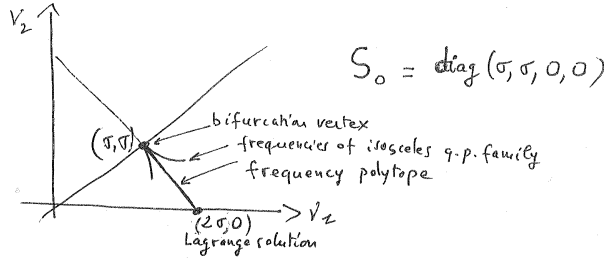 ν₂
S₀ = diag (σ, σ, 0, 0)
bifurcation vertex
(σ, σ)
frequencies of isosceles q.p. family
frequency polytope
ν₁
(2σ, 0)
Lagrange solution